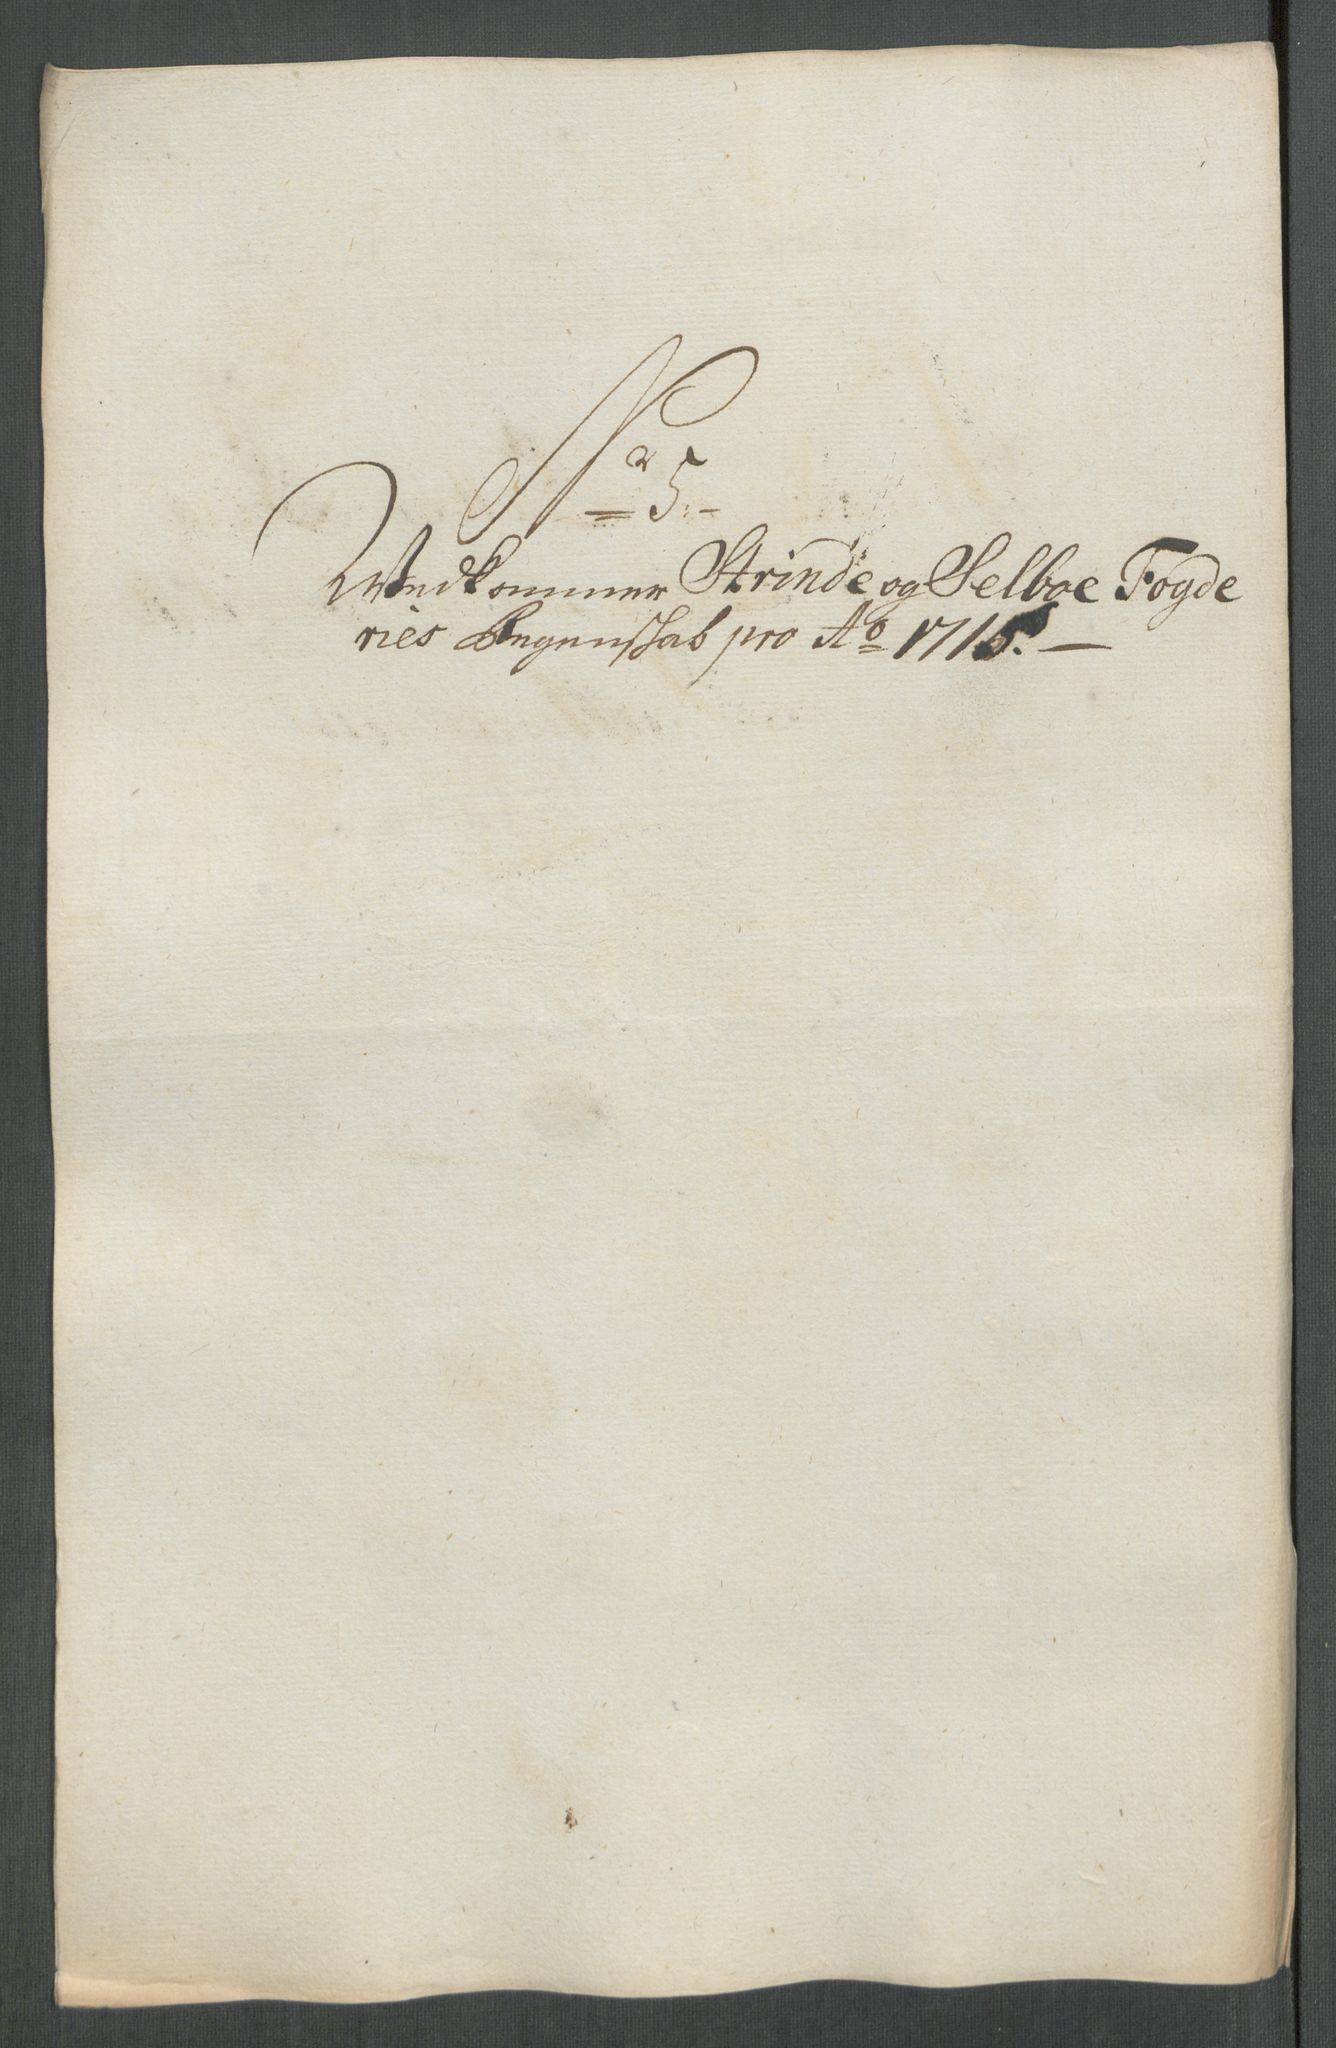 Nr 5.
Wedkommer Strinde og Selboe Fogde
ries Regenschab pro Ao 1715.